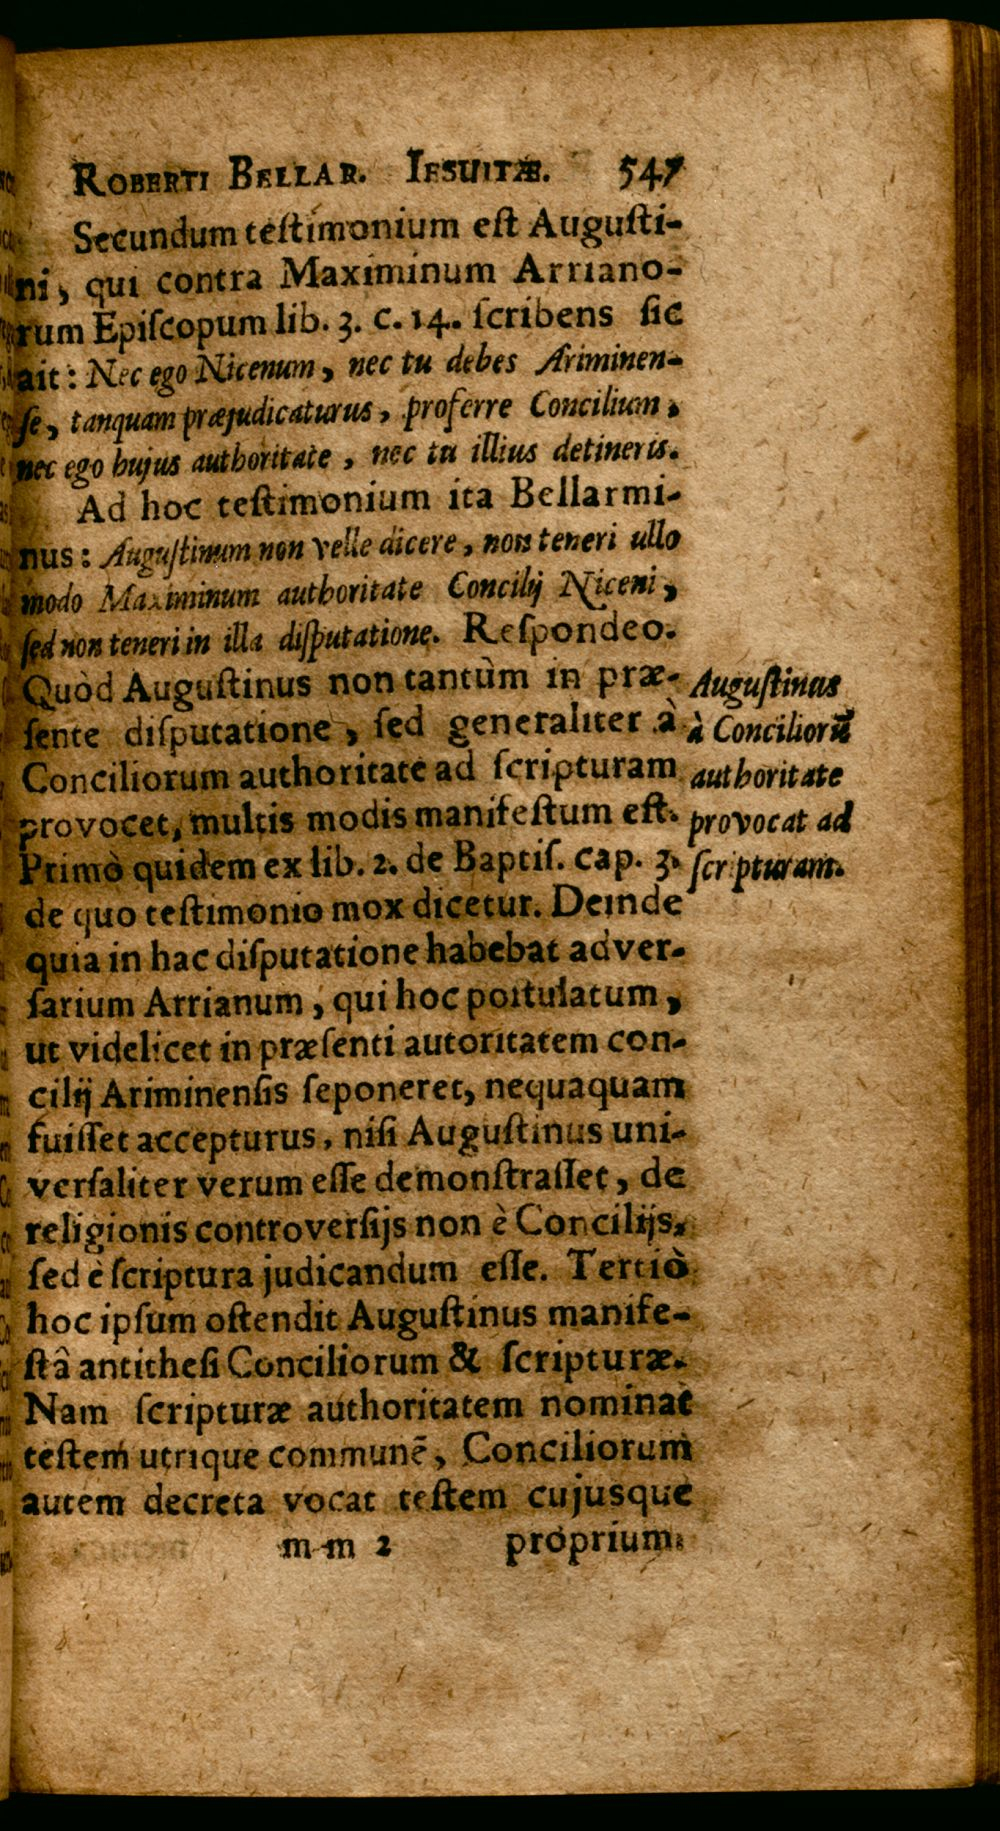 ROBERTI BELLAR. IESUITÆ. 547
Secundum teſtimonium eſt Auguſti-
ni, qui contra Maximinum Arriano-
rum Epiſcopum lib. 3. c. 14. ſcribens ſic
ait: Nec ego Nicenum, nec tu debes Ariminen-
ſe, tanquam præjudicaturus, proferre Concilium,
nec ego hujus authoritate, nec tu illius detineris.
Ad hoc teſtimonium ita Bellarmi-
nus: Auguſtinum non velle dicere, non teneri ullo
modo Maximinum authoritate Concilij Niceni,
ſed non teneri in illa diſputatione. Reſpondeo.
Quòd Auguſtinus non tantùm in præ-
ſente diſputatione, ſed generaliter à
Conciliorum authoritate ad ſcripturam
provocet, multis modis manifeſtum eſt.
Primò quidem ex lib. 2. de Baptiſ. cap. 3.
de quo teſtimonio mox dicetur. Deinde
quia in hac diſputatione habebat adver-
ſarium Arrianum, qui hoc poſtulatum,
ut videlicet in præſenti autoritatem con-
cilij Ariminenſis ſeponeret, nequaquam
fuiſſet accepturus, niſi Auguſtinus uni-
verſaliter verum eſſe demonſtraſſet, de
religionis controverſijs non è Concilijs,
ſed è ſcriptura judicandum eſſe. Tertiò
hoc ipſum oſtendit Auguſtinus manife-
ſtâ antitheſi Conciliorum & ſcripturæ.
Nam ſcripturæ authoritatem nominat
teſtem utrique communē, Conciliorum
autem decreta vocat teſtem cujusque
mm 2 proprium.
Auguſtinus
à Conciliorū
authoritate
provocat ad
ſcripturam.